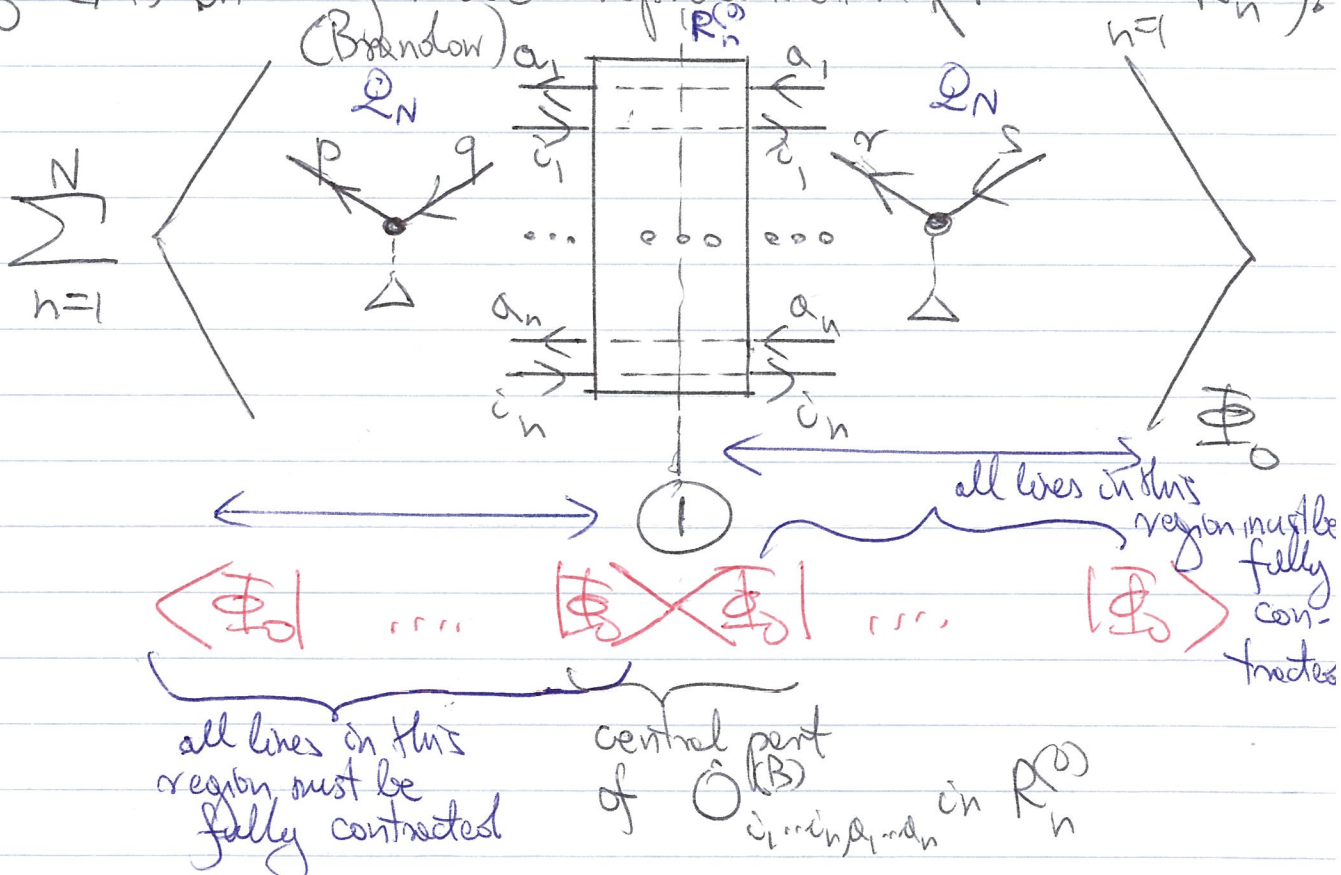 (Brandow) R_n^{(0)} n=1
a_1 a_1
Q_N Q_N
i_1 i_1
p q r s
N
∑
n=1
... ooo ooo
a_n a_n
i_n i_n
Φ_0
1
all lines in this
region must be
fully
con-
tracted
<Φ_0| .... |Φ_0><Φ_0| .... |Φ_0>
all lines in this
region must be
fully contracted
central part
of Ô^{(B)}_{i_1...i_n,a_1...a_n} in R_n^{(0)}